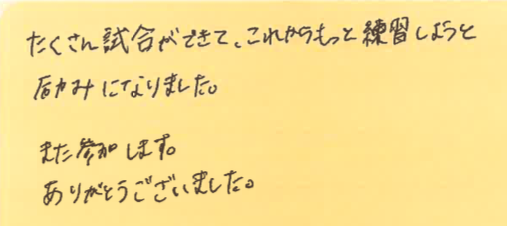 たくさん試合ができて、これからもっと練習しようと
励みになりました。
また参加します。
ありがとうございました。